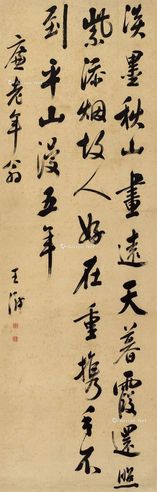 淡墨秋山畫遠天暮霞還照
紫添烟故人好在重攜手不
到平山漫五年
老年翁
王